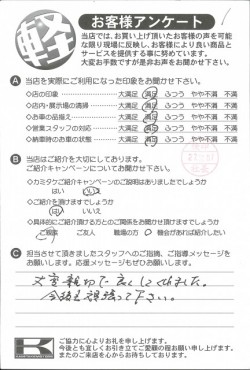 軽
お客様アンケート
当店では、お買い上げ頂いたお客様の声を可能
な限り現場に反映し、お客様により良い商品と
サービスを提供する事に努めています。
大変お手数ですが是非お声をお聞かせ下さい。
A 当店を実際にご利用になった印象をお聞かせ下さい。
◇店の印象 大満足 満足 ふつう やや不満 不満
◇店内・展示場の清掃 大満足 満足 ふつう やや不満 不満
◇お車の品揃え 大満足 満足 ふつう やや不満 不満
◇営業スタッフの対応 大満足 満足 ふつう やや不満 不満
◇納車時のお車の状態 大満足 満足 ふつう やや不満 不満
B 当店はご紹介を大切にしております。
ご紹介キャンペーンについてお聞かせ下さい。
◇カミタケご紹介キャンペーンのご説明はありましたでしょうか
はい いいえ
◇ご紹介を頂けますでしょうか
はい いいえ
◇具体的にご紹介頂ける方とのご関係をお聞かせ頂けますでしょうか
ご親戚 ご友人 職場の方 機会があれば紹介したい
C 担当させて頂きましたスタッフへのご指摘、ご指導メッセージを
お願いします。応援メッセージもぜひお願いします。
大変親切で良くしてくれました。
今後も頑張って下さい。
K
ご協力に心よりお礼を申し上げます。
今後とも宜しくお引き立てご愛顧の程お願い申し上げます。
またのご来店を心からお待ちしております。